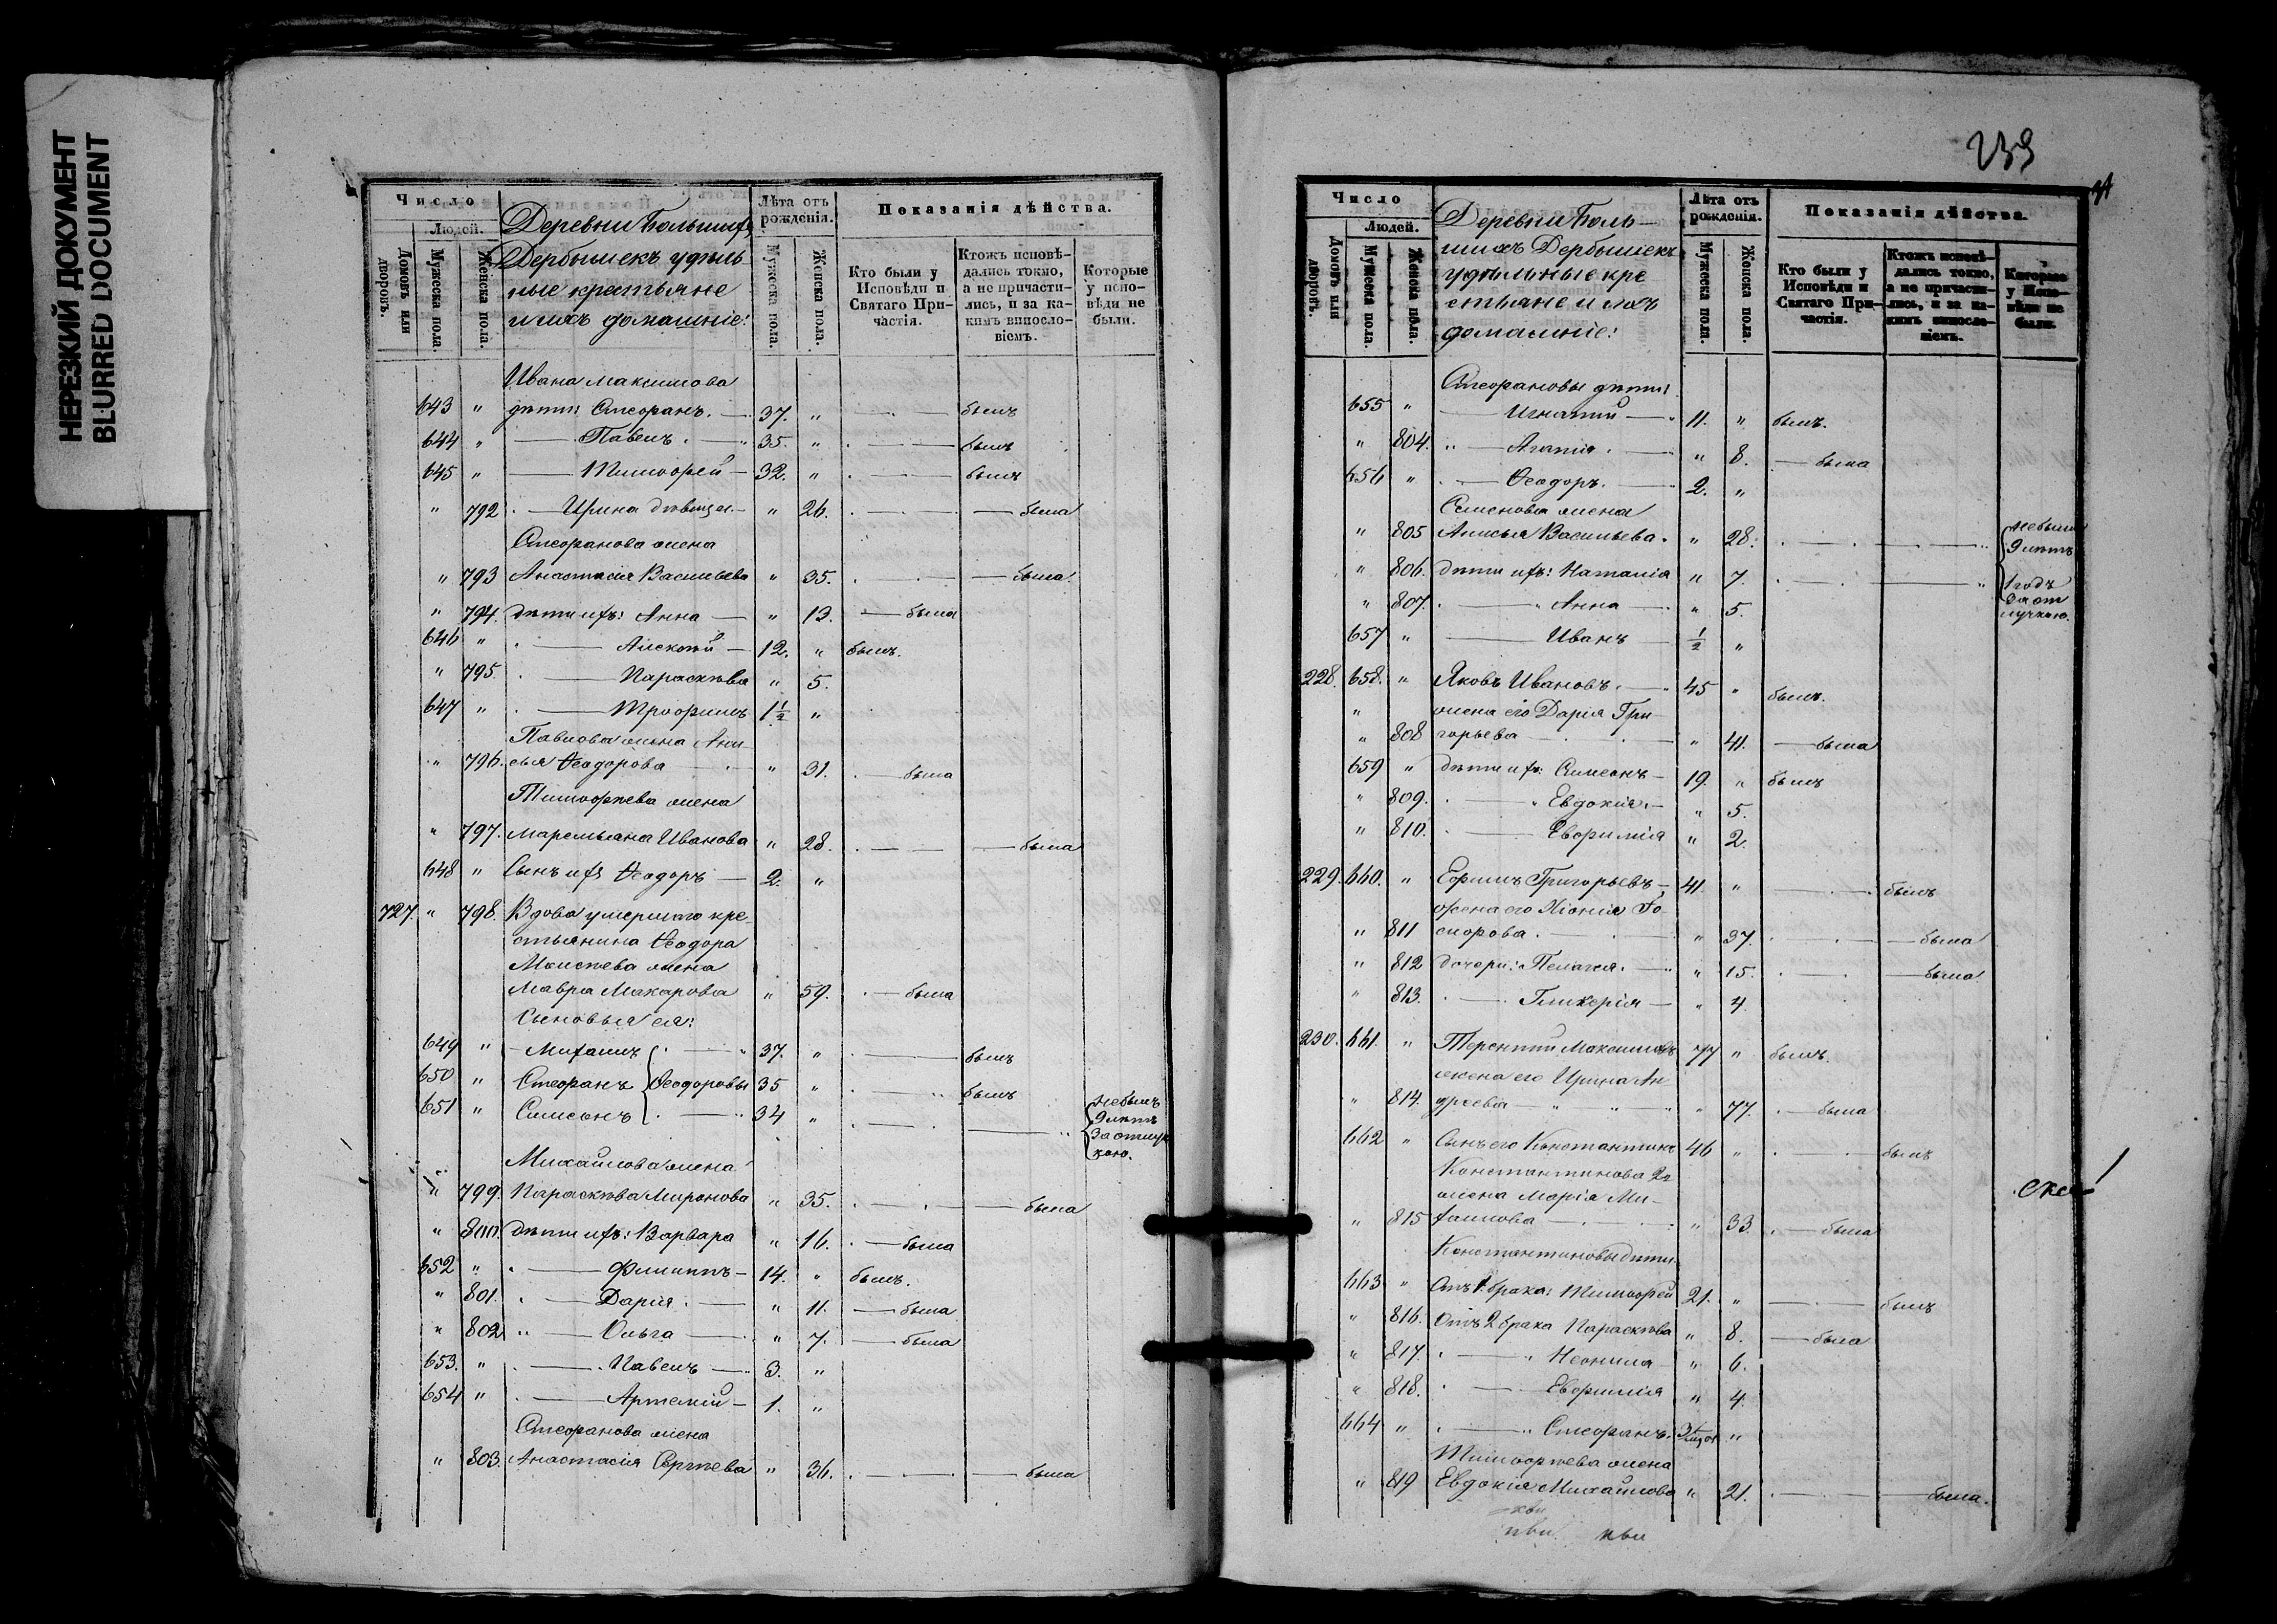 НЕРЕЗКИЙ ДОКУМЕНТ
BLURRED DOCUMENT
Число
Людей.
Домовъ или дворовъ.
Мужеска пола.
Женска пола.
Деревни Большихъ
Дербышекъ удѣль
ные крестьяне
и ихъ домашніе:
Лѣта отъ рожденія.
Мужеска пола.
Женска пола.
Показанія дѣйства.
Кто были у Исповѣди и Святаго Причастія.
Ктожъ исповѣдались токмо, а не причастились, и за какимъ винословіемъ.
Которые у исповѣди не были.
Ивана Максимова
643 " дѣти: Стефанъ. — 37. " былъ
644 " — Павелъ. — 35. " былъ
645 " — Тимофей — 32. " былъ
" 792 — Ирина дѣвица. — " 26. — была
Стефанова жена
" 793 Анастасія Васильева " 35. — была
" 794. дѣти ихъ: Анна — " 13. — была
646 " — Алексѣй — 12. " былъ.
" 795. — Параскева " 5.
647 " — Трофимъ 1 1/2 "
Павлова жена Ани-
" 796. сья Ѳеодорова — " 31. — была
Тимофѣева жена
" 797. Маремьяна Иванова " 28. — была
648 " Сынъ ихъ Ѳеодоръ — 2. "
727. " 798. Вдова умершаго кре-
стьянина Ѳеодора
Моисѣева жена
Мавра Макарова " 59. — была
Сыновья ея:
649 " — Михаилъ — 37. " былъ
650 " Стефанъ { Ѳеодоровы 35 " былъ
651 " Симеонъ — 34 " не былъ 9 лѣтъ За отлучкою.
Михайлова жена
" 799. Параскева Миронова " 35. — была
" 800. дѣти ихъ: Варвара " 16. — была
652 " — Филиппъ — 14. " былъ.
" 801. — Дарія. — " 11. — была
" 802 — Ольга — " 7. — была
653. " — Павелъ — 3. "
654 " — Артемій — 1. "
Стефанова жена
" 803. Анастасія Сергѣева " 36. — была
239
Число
Людей.
Домовъ или дворовъ.
Мужеска пола.
Женска пола.
Деревни Боль-
шихъ Дербышекъ
удѣльные кре
стьяне и ихъ
домашніе:
Лѣта отъ рожденія.
Мужеска пола.
Женска пола.
Показанія дѣйства.
Кто были у Исповѣди и Святаго Причастія.
Ктожъ исповѣдались токмо, а не причастились, и за какимъ винословіемъ.
Которые у Исповѣди не были.
Стефановы дѣти:
655 " — Игнатій — 11. " былъ.
" 804. — Агапія. — " 8. — была
656 " — Ѳеодоръ. — 2. "
Семенова жена
" 805 Анисья Васильева. " 28. не была 9 лѣтъ
" 806. дѣти ихъ: Наталія " 7. 1 годъ За от
" 807. — Анна — " 5. лучкою.
657 " — Иванъ — 1/2 "
228. 658. " Яковъ Ивановъ. — 45 " былъ.
" жена его Дарія Гри-
" 808 горьева — " 41. — была
659 " дѣти ихъ: Симеонъ — 19. " былъ
" 809. — Евдокія. — " 5.
" 810. — Евфимія " 2.
229. 660. " Ефимъ Григорьевъ — 41 " былъ
жена его Хіонія
" 811 — " 37. — была
" 812 дочери: Пелагея. — " 15. — была
" 813. — Гликерія — " 4.
230. 661. " Терентій Максимовъ 77 " былъ.
жена его Ирина Ан
" 814. дреева — " 77. — была
662 " Сынъ его Константинъ 46 " былъ
Константинова 2я
жена Марія Ми-
" 815 хаилова — " 33. — была
Константиновы дѣти
663 " Отъ 1 брака: Тимофей 21. " былъ
" 816. Отъ 2 брака Параскева " 8. — была
" 817. — Неонила " 6.
" 818. — Евфимія " 4.
664 " — Стефанъ. "
Тимофѣева жена
" 819 Евдокія Михайлова " 21. — была.